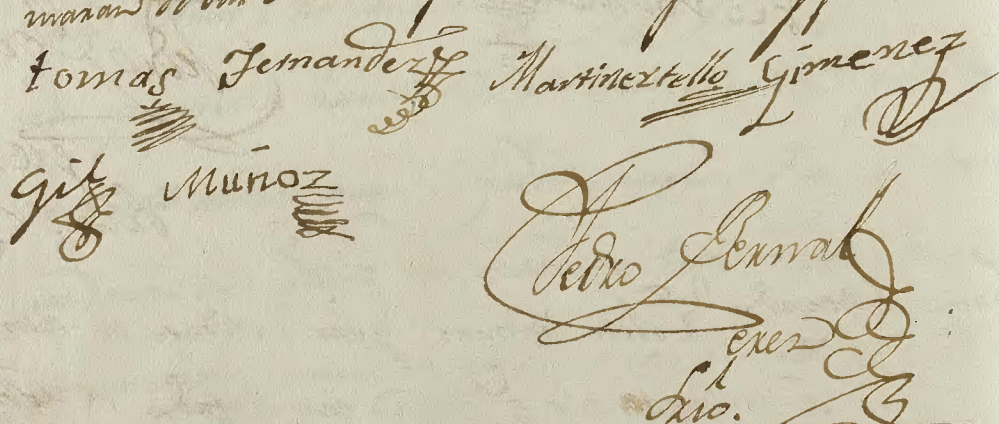 tomas Fernandez Martineztello Gimenez
Gil Muñoz
Pedro Bernal
erez